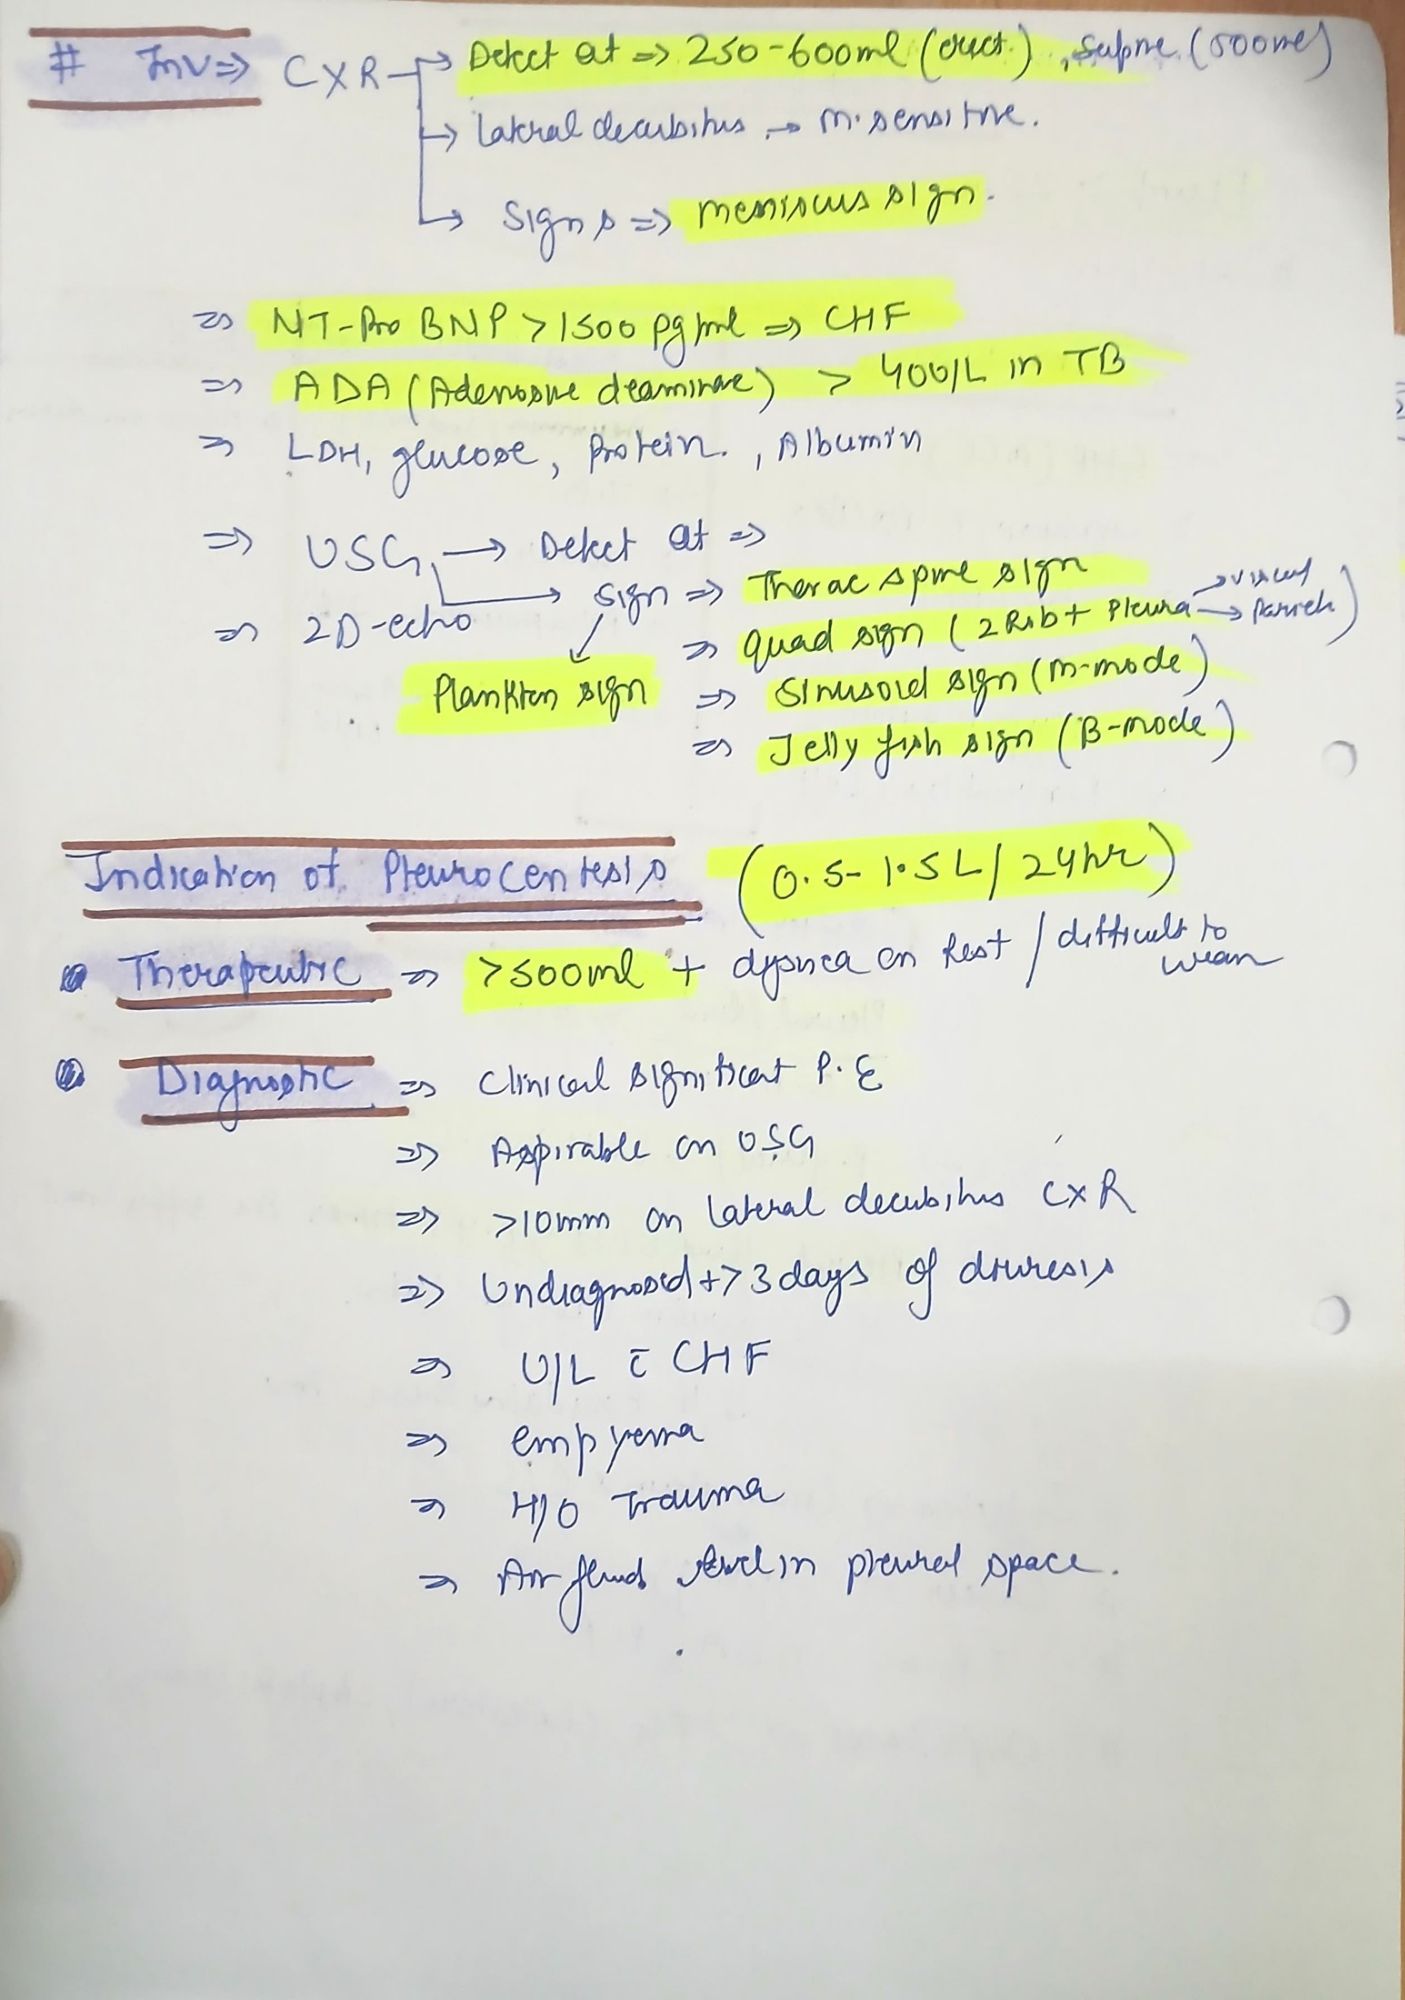 # Inv ⇒ CXR → Detect at ⇒ 250-600ml (erect), Supine (500ml)
→ Lateral decubitus → m. sensitive.
→ Signs ⇒ meniscus sign.
⇒ NT-Pro BNP > 1500 pg/ml ⇒ CHF
⇒ ADA (Adenosine deaminase) > 40U/L in TB
⇒ LDH, glucose, Protein, Albumin
⇒ USG → Detect at ⇒
→ Sign ⇒ Thorac spine sign
⇒ 2D-echo
⇒ Quad sign (2 Rib + Pleura → viscer → Pariet)
Plankton sign ⇒ Sinusoid sign (M-mode)
⇒ Jelly fish sign (B-mode)
Indication of Pleurocentesis (0.5-1.5L/24hr)
Therapeutic ⇒ >500ml + dyspnea on Rest / difficult to wean
Diagnostic ⇒ Clinical significant P.E
⇒ Aspirable on USG
⇒ >10mm on lateral decubitus CXR
⇒ Undiagnosed + > 3 days of diuresis
⇒ U/L c̄ CHF
⇒ empyema
⇒ H/O Trauma
⇒ Air fluid level in pleural space.